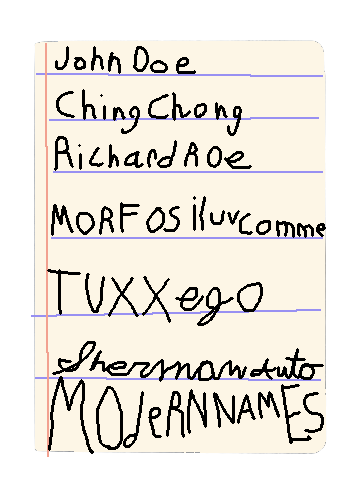 John Doe
Ching Chong
Richard Roe
MORFOS iluvcomme
TUXXego
Sherman Auto
MOdeRNNAMES